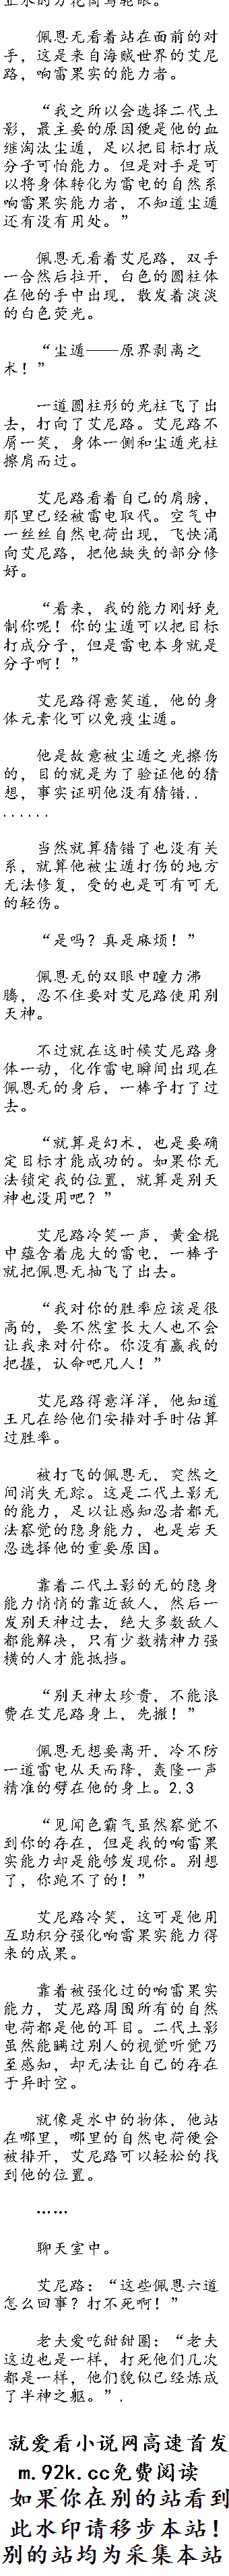 佩恩无看着站在面前的对
手，这是来自海贼世界的艾尼
路，响雷果实的能力者。
“我之所以会选择二代土
影，最主要的原因便是他的血
继淘汰尘遁，足以把目标打成
分子可怕能力。但是对手是可
以将身体转化为雷电的自然系
响雷果实能力者，不知道尘遁
还有没有用处。”
佩恩无看着艾尼路，双手
一合然后拉开，白色的圆柱体
在他的手中出现，散发着淡淡
的白色荧光。
“尘遁——原界剥离之
术！”
一道圆柱形的光柱飞了出
去，打向了艾尼路。艾尼路不
屑一笑，身体一侧和尘遁光柱
擦肩而过。
艾尼路看着自己的肩膀，
那里已经被雷电取代。空气中
一丝丝自然电荷出现，飞快涌
向艾尼路，把他缺失的部分修
好。
“看来，我的能力刚好克
制你呢！你的尘遁可以把目标
打成分子，但是雷电本身就是
分子啊！”
艾尼路得意笑道，他的身
体元素化可以免疫尘遁。
他是故意被尘遁之光擦伤
的，目的就是为了验证他的猜
想，事实证明他没有猜错..
......
当然就算猜错了也没有关
系，就算他被尘遁打伤的地方
无法修复，受的也是可有可无
的轻伤。
“是吗？真是麻烦！”
佩恩无的双眼中瞳力沸
腾，忍不住要对艾尼路使用别
天神。
不过就在这时候艾尼路身
体一动，化作雷电瞬间出现在
佩恩无的身后，一棒子打了过
去。
“就算是幻术，也是要确
定目标才能成功的。如果你无
法锁定我的位置，就算是别天
神也没用吧？”
艾尼路冷笑一声，黄金棍
中蕴含着庞大的雷电，一棒子
就把佩恩无抽飞了出去。
“我对你的胜率应该是很
高的，要不然室长大人也不会
让我来对付你。你没有赢我的
把握，认命吧凡人！”
艾尼路得意洋洋，他知道
王凡在给他们安排对手时估算
过胜率。
被打飞的佩恩无，突然之
间消失无踪。这是二代土影无
的能力，足以让感知忍者都无
法察觉的隐身能力，也是岩天
忍选择他的重要原因。
靠着二代土影的无的隐身
能力悄悄的靠近敌人，然后一
发别天神过去，绝大多数敌人
都能解决，只有少数精神力强
横的人才能抵挡。
“别天神太珍贵，不能浪
费在艾尼路身上，先撤！”
佩恩无想要离开，冷不防
一道雷电从天而降，轰隆一声
精准的劈在他的身上。2.3
“见闻色霸气虽然察觉不
到你的存在，但是我的响雷果
实能力却是能够发现你。别想
了，你跑不了的！”
艾尼路冷笑，这可是他用
互助积分强化响雷果实能力得
来的成果。
靠着被强化过的响雷果实
能力，艾尼路周围所有的自然
电荷都是他的耳目。二代土影
虽然能瞒过别人的视觉听觉乃
至感知，却无法让自己的存在
于异时空。
就像是水中的物体，他站
在哪里，哪里的自然电荷便会
被排开，艾尼路可以轻松的找
到他的位置。
……
聊天室中。
艾尼路：“这些佩恩六道
怎么回事？打不死啊！”
老夫爱吃甜甜圈：“老夫
这边也是一样，打死他们几次
都是一样，他们貌似已经炼成
了半神之躯。”.
就爱看小说网高速首发
m.92k.cc免费阅读
如果你在别的站看到
此水印请移步本站！
别的站均为采集本站